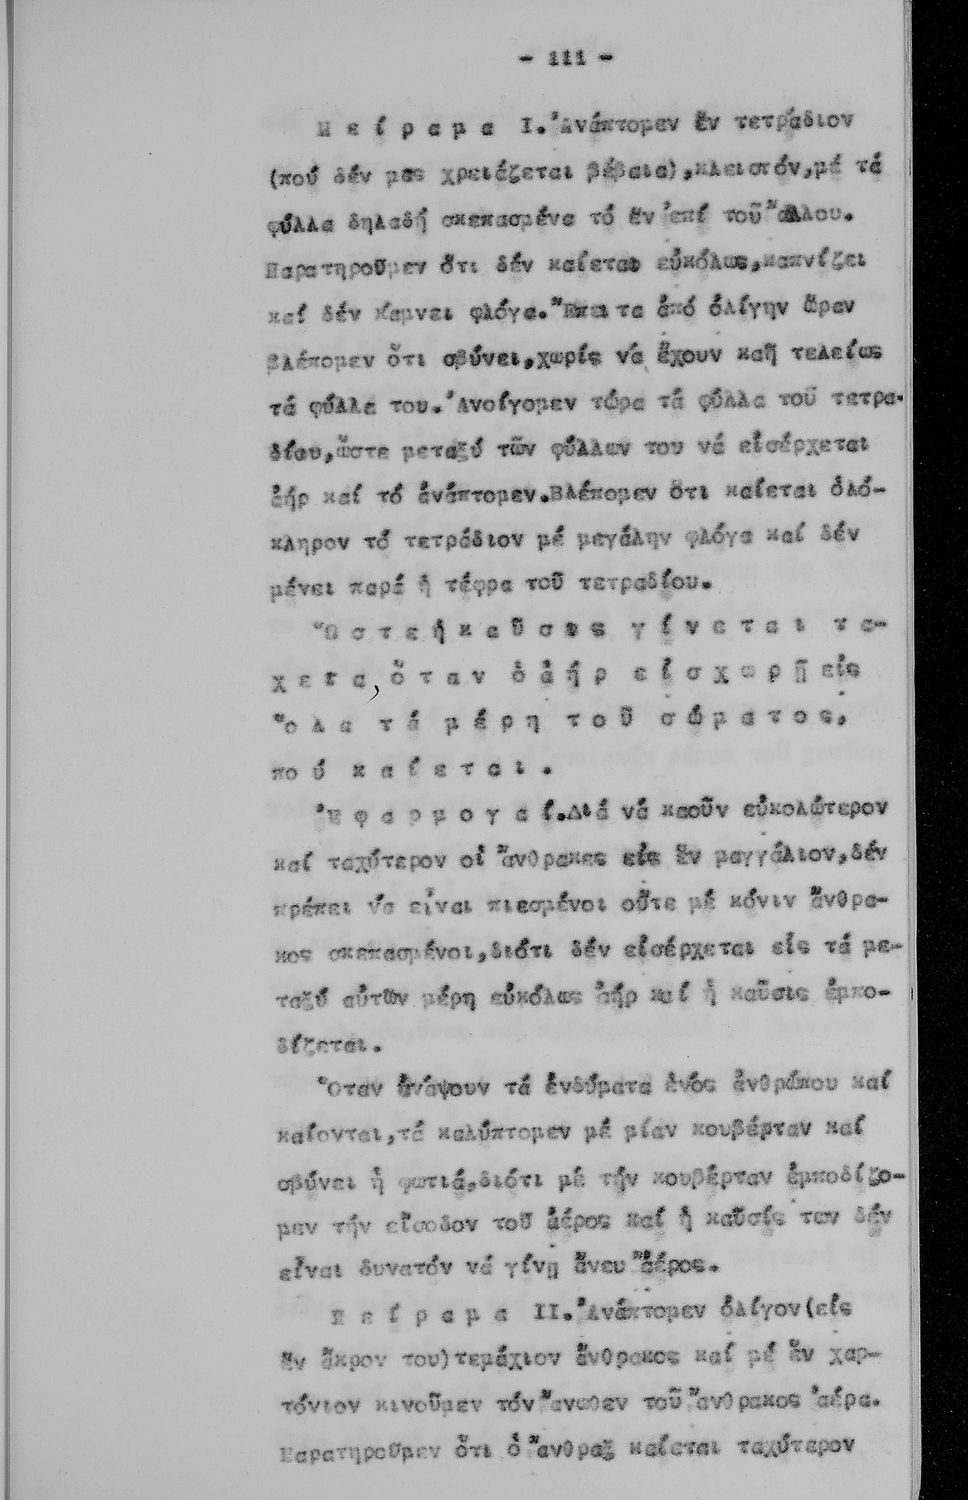 - 111 -
Π ε ί ρ α μ α I. Ἀνάπτομεν ἕν τετράδιον
(πού δέν μας χρειάζεται βέβαια), κλειστόν, μέ τά
φύλλα δηλαδή σκεπασμένα τό ἕν ἐπί τοῦ ἄλλου.
Παρατηροῦμεν ὅτι δέν καίεται εὐκόλως, καπνίζει
καί δέν κάμνει φλόγα. Ἔπειτα ἀπό ὀλίγην ὥραν
βλέπομεν ὅτι σβύνει, χωρίς νά ἔχουν καῆ τελείως
τά φύλλα του. Ἀνοίγομεν τώρα τά φύλλα τοῦ τετρα-
δίου, ὥστε μεταξύ τῶν φύλλων του νά εἰσέρχεται
ἀήρ καί τό ἀνάπτομεν. Βλέπομεν ὅτι καίεται ὁλό-
κληρον τό τετράδιον μέ μεγάλην φλόγα καί δέν
μένει παρά ἡ τέφρα τοῦ τετραδίου.
Ὥ σ τ ε ἡ κ α ῦ σ ι ς γ ί ν ε τ α ι τ α-
χ ε ῖ α, ὅ τ α ν ὁ ἀ ή ρ ε ἰ σ χ ω ρ ῇ εἰς
ὅ λ α τ ά μ έ ρ η τ ο ῦ σ ώ μ α τ ο ς,
πο ύ κ α ί ε τ α ι .
Ἐ φ α ρ μ ο γ α ί. Διά νά καοῦν εὐκολώτερον
καί ταχύτερον οἱ ἄνθρακες εἰς ἕν μαγγάλιον, δέν
πρέπει νά εἶναι πιεσμένοι οὔτε μέ κόνιν ἄνθρα-
κος σκεπασμένοι, διότι δέν εἰσέρχεται εἰς τά με-
ταξύ αὐτῶν μέρη εὐκόλως ἀήρ καί ἡ καῦσις ἐμπο-
δίζεται.
Ὅταν ἀνάψουν τά ἐνδύματα ἑνός ἀνθρώπου καί
καίονται, τά καλύπτομεν μέ μίαν κουβέρταν καί
σβύνει ἡ φωτιά, διότι μέ τήν κουβέρταν ἐμποδίζο-
μεν τήν εἴσοδον τοῦ ἀέρος καί ἡ καῦσίς των δέν
εἶναι δυνατόν νά γίνῃ ἄνευ ἀέρος.
Π ε ί ρ α μ α II. Ἀνάπτομεν ὀλίγον (εἰς
ἕν ἄκρον του) τεμάχιον ἄνθρακος καί μέ ἕν χαρ-
τόνιον κινοῦμεν τόν ἄνωθεν τοῦ ἄνθρακος ἀέρα.
Παρατηροῦμεν ὅτι ὁ ἄνθραξ καίεται ταχύτερον